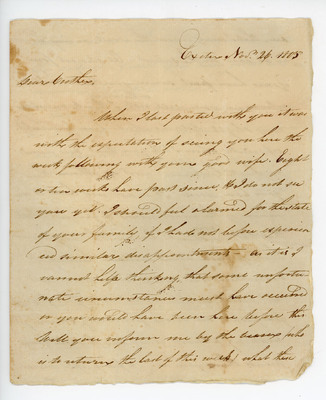 Exeter Nov. 26. 1805
Dear Brother,
When I last parted with you it was
with the expectation of seeing you here the
week following with your good wife. Eight
or ten weeks have past since, & I do not see
you yet. I should feel alarmed for the state
of your family if I had not before experienc
ed similar disappointments — as it is I
cannot help thinking that some unfortu
nate circumstances must have occurred
or you would have been here before this
Will you inform me by the bearer who
is to return the last of this week what these